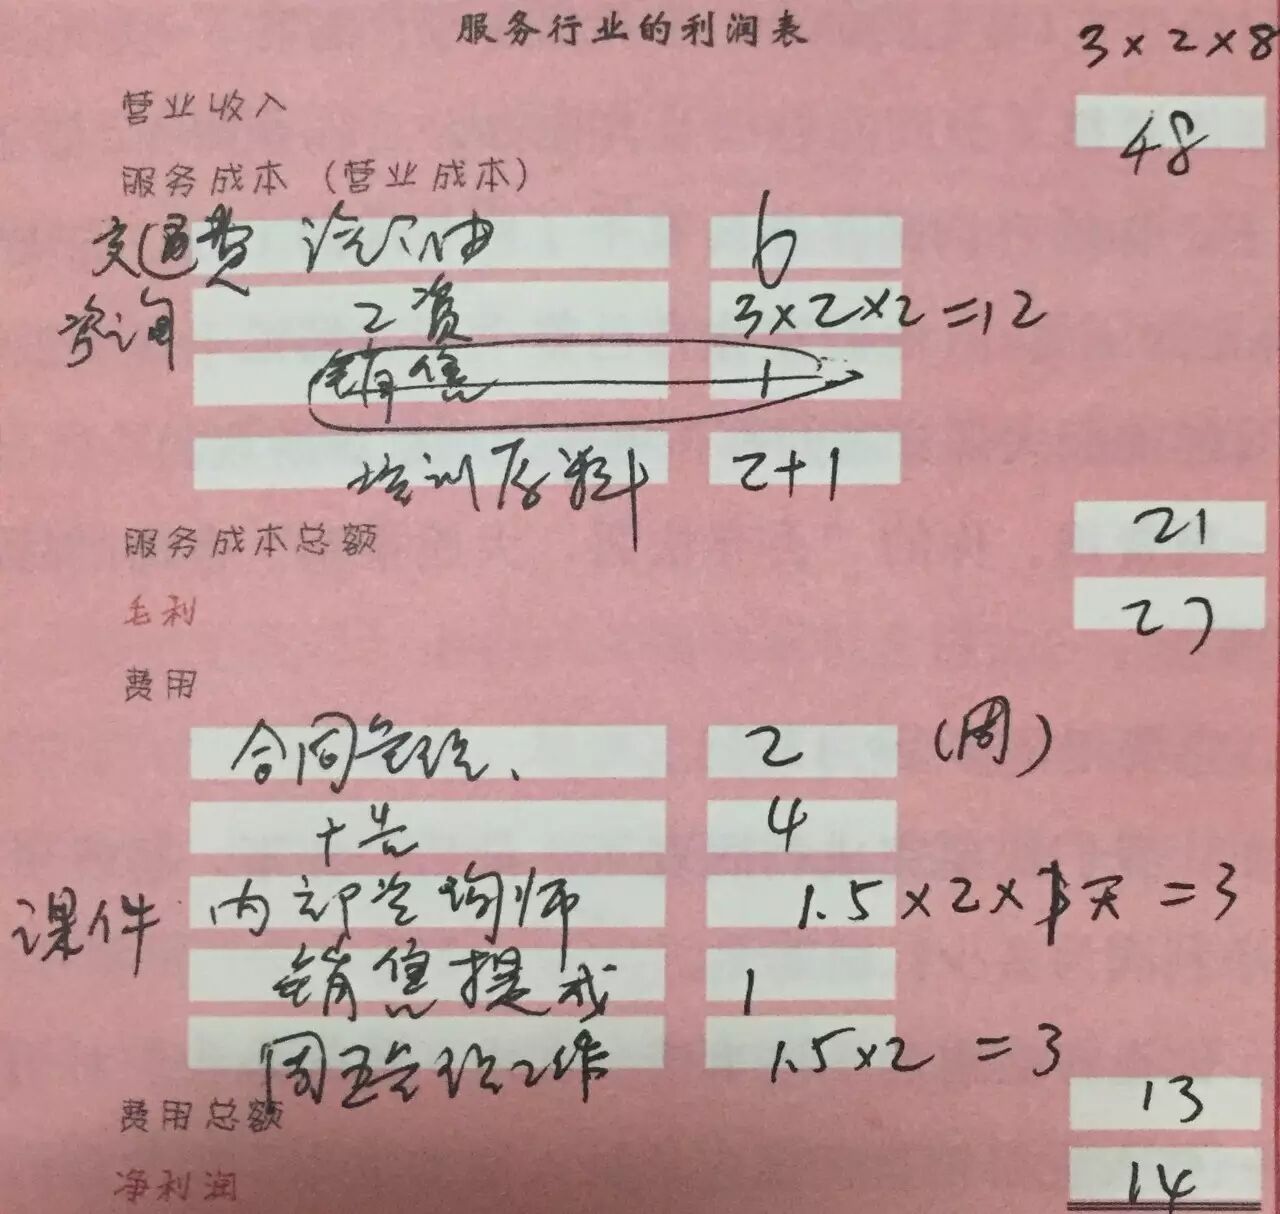 服务行业的利润表
3×2×8
营业收入 48
服务成本（营业成本）
交通费 汽油 6
咨询 工资 3×2×2=12
销售 1
培训原料 2+1
服务成本总额 21
毛利 27
费用
合同管理、 2 （周）
广告 4
课件 内部咨询师 1.5×2×1天=3
销售提成 1
周五管理工作 1.5×2=3
费用总额 13
净利润 14